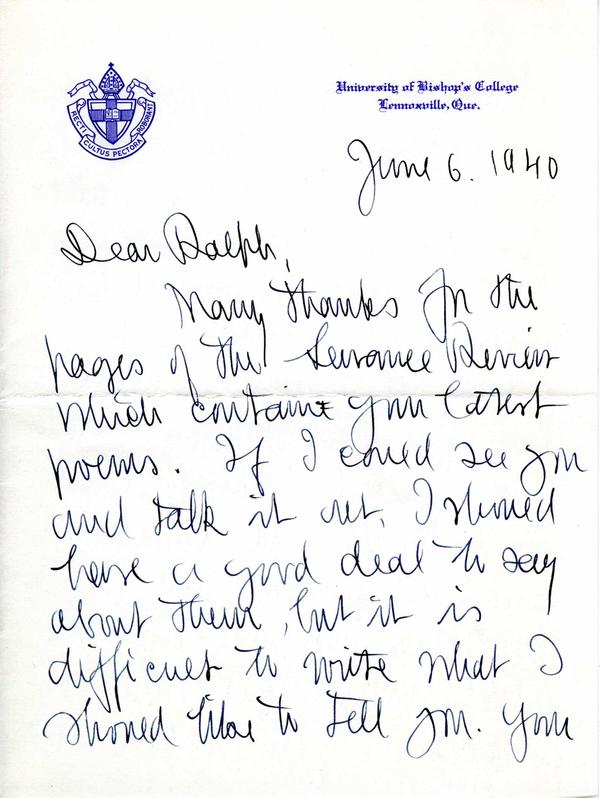 RECTI CULTUS PECTORA ROBORANT
University of Bishop's College
Lennoxville, Que.
June 6. 1940
Dear Ralph,
Many thanks for the
pages of the Sewanee Review
which contain your latest
poems. If I could see you
and talk it out, I should
have a good deal to say
about them, but it is
difficult to write what I
should like to tell you. Your